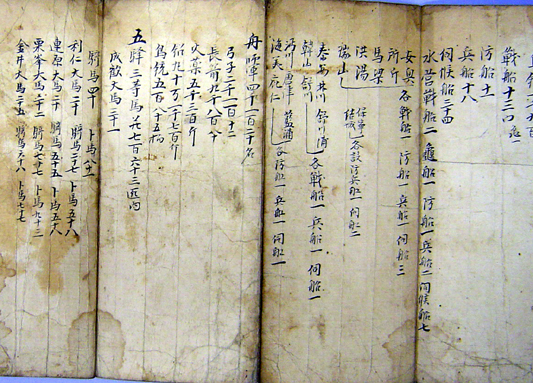 戰船十三
防船十一
兵船十八
伺候船三十四
水營戰船二 龜船一 防船一 兵船二 伺候船七
安興各戰船一 防船一 兵船一 伺船三
所斤
馬梁
洪陽 保寧 結城 各設防兵船一 伺船二
瑞山
泰安 舒川 各戰船一 兵船一 伺船一
韓山
沔川 唐津 藍浦 各防船一 兵船一 伺船一
庇仁
舟師軍四千一百二十名
弓子二千一百十二
長箭九千八百介
火藥五千三百斤
鳥銃五百八十五柄
五驛三等馬共七百六十三匹內
成歡大馬二十一
騎馬四十 卜馬八十一
利仁大馬二十 騎馬三十七 卜馬五十八
連原大馬二十 騎馬五十五 卜馬五十八
栗峯大馬二十二 騎馬七十七 卜馬九十三
金井大馬二十五 騎馬九十八 卜馬七十七